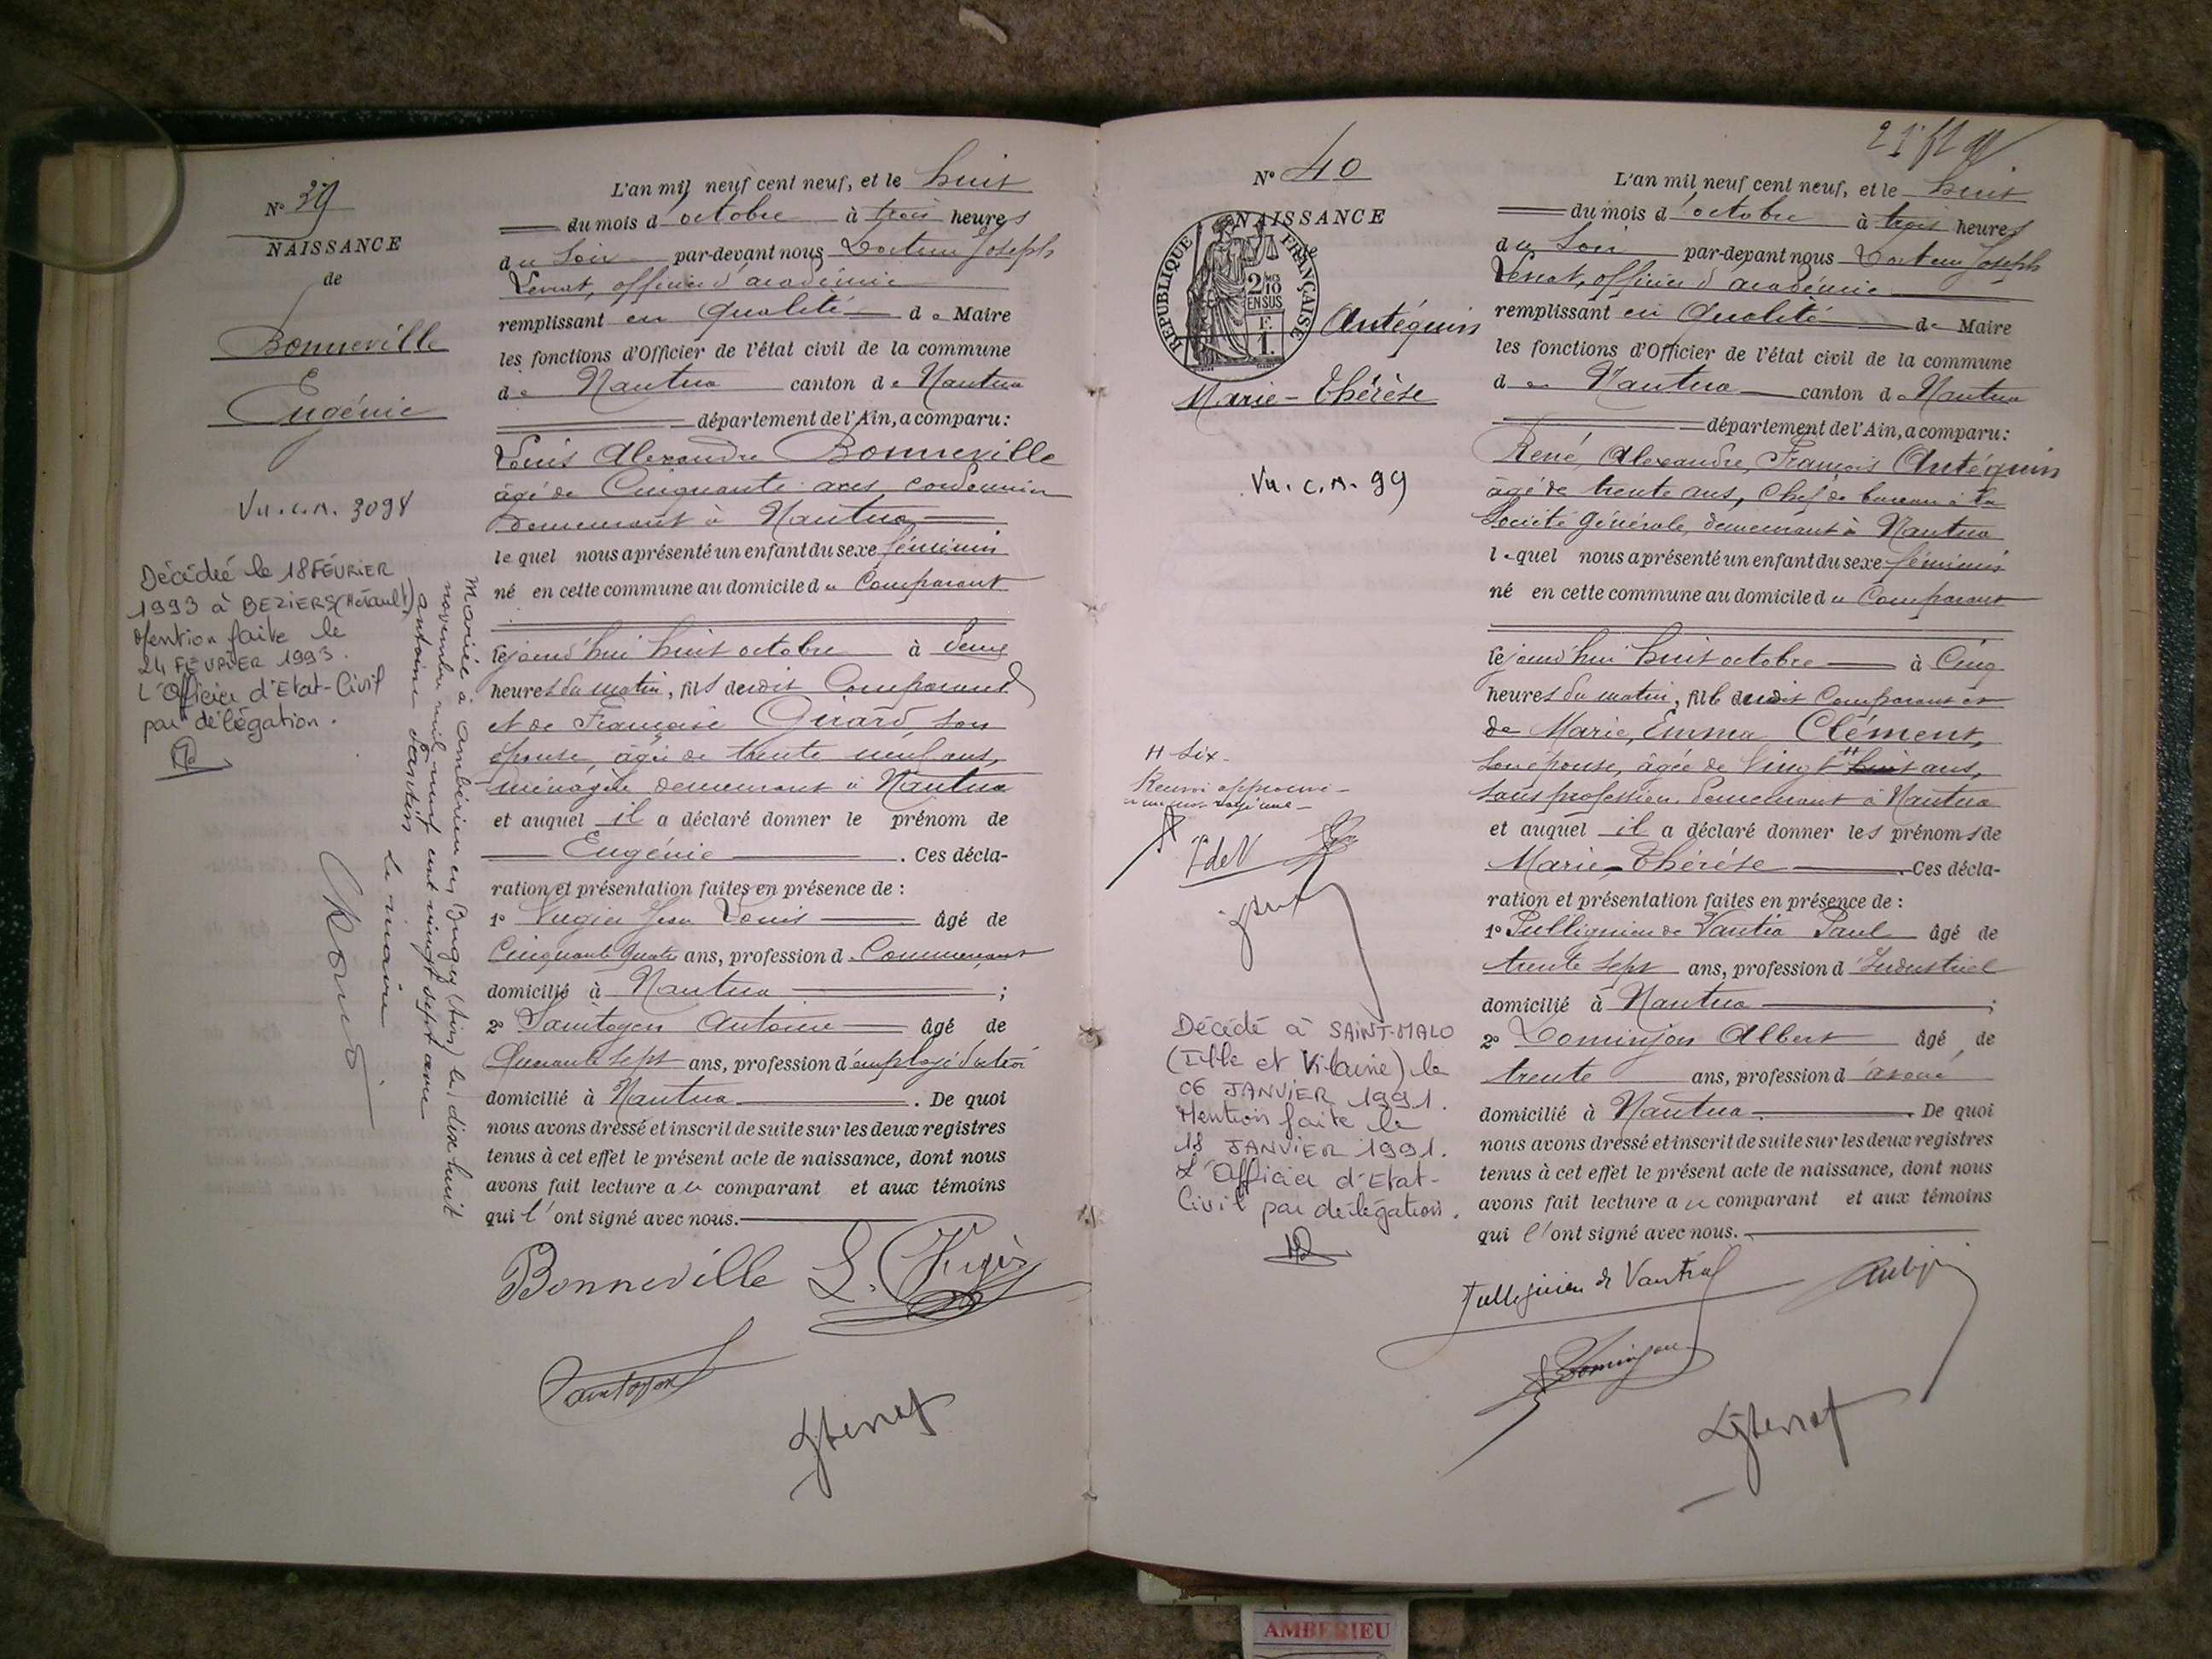 N° 39
NAISSANCE
de
Bonneville
Eugénie
Vu. c.m. 3098
Décédée le 18 FÉVRIER
1993 à BEZIERS (Hérault)
Mention faite le
24 FEVRIER 1993.
L'Officier d'Etat-Civil
par délégation.
Mariée à Ambérieu en Bugey (Ain) le dix huit
novembre mil neuf cent vingt sept avec
Antoine
Le maire
L'an mil neuf cent neuf, et le huit
du mois d'octobre à trois heures
du soir par-devant nous Docteur Joseph
officier d'académie
remplissant en qualité de Maire
les fonctions d'Officier de l'état civil de la commune
de Nantua canton de Nantua
département de l'Ain, a comparu:
Louis Alexandre Bonneville
âgé de Cinquante ans cordonnier
demeurant à Nantua
le quel nous a présenté un enfant du sexe féminin
né en cette commune au domicile du Comparant
cejourd'hui huit octobre à deux
heures du matin, fils dudit Comparant
et de Françoise Girard, son
épouse, âgée de trente neuf ans,
ménagère demeurant à Nantua
et auquel il a déclaré donner le prénom de
Eugénie . Ces décla-
ration et présentation faites en présence de :
1° Jean Louis âgé de
Cinquante quatre ans, profession de Commerçant
domicilié à Nantua ;
2° Antoine âgé de
Quarante sept ans, profession d'employé
domicilié à Nantua . De quoi
nous avons dressé et inscrit de suite sur les deux registres
tenus à cet effet le présent acte de naissance, dont nous
avons fait lecture au comparant et aux témoins
qui l'ont signé avec nous.
Bonneville
N° 40
NAISSANCE
RÉPUBLIQUE FRANÇAISE
2/10
EN SUS
F.
1.
Antéguin
Marie-Thérèse
Vu. c.m. 99
H six
Renvoi approuvé
Décédé à SAINT-MALO
(Ille et Vilaine) le
06 JANVIER 1991.
Mention faite le
18 JANVIER 1991.
L'Officier d'Etat-
Civil par délégation.
L'an mil neuf cent neuf, et le huit
du mois d'octobre à trois heures
du soir par-devant nous Docteur Joseph
officier d'académie
remplissant en qualité de Maire
les fonctions d'Officier de l'état civil de la commune
de Nantua canton de Nantua
département de l'Ain, a comparu:
René, Alexandre, François Antéguin
âgé de trente ans, Chef de bureau à la
Société Générale, demeurant à Nantua
lequel nous a présenté un enfant du sexe féminin
né en cette commune au domicile du Comparant
cejourd'hui huit octobre à Cinq
heures du matin, fille dudit Comparant et
de Marie, Emma Clément,
son épouse, âgée de Vingt H huit ans,
sans profession demeurant à Nantua
et auquel il a déclaré donner les prénoms de
Marie-Thérèse . Ces décla-
ration et présentation faites en présence de :
1° Paul âgé de
trente sept ans, profession d'Industriel
domicilié à Nantua ;
2° Dominjon Albert âgé de
trente ans, profession d'avoué
domicilié à Nantua . De quoi
nous avons dressé et inscrit de suite sur les deux registres
tenus à cet effet le présent acte de naissance, dont nous
avons fait lecture au comparant et aux témoins
qui l'ont signé avec nous.
Dominjon
AMBERIEU